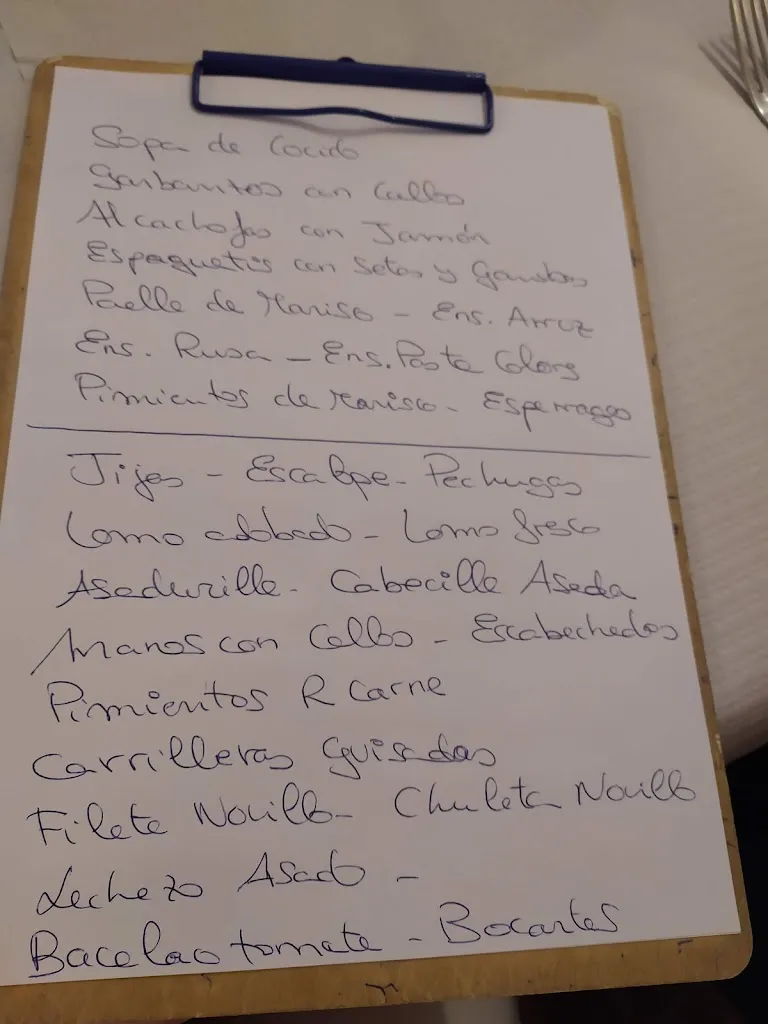 Sopa de Cocido
Garbantos con Callos
Alcachofas con Jamón
Espaguetis con Setas y Gambas
Paella de Marisco - Ens. Arroz
Ens. Rusa - Ens. Pasta Colors
Pimientos de Marisco - Esparragos
Jijas - Escalope - Pechugas
Lomo adobado - Lomo fresco
Asadurilla - Cabecilla Asada
Manos con Callos - Escabechados
Pimientos R Carne
Carrilleras Guisadas
Filete Novillo - Chuleta Novillo
Lechazo Asado -
Bacalao tomate - Bocartes